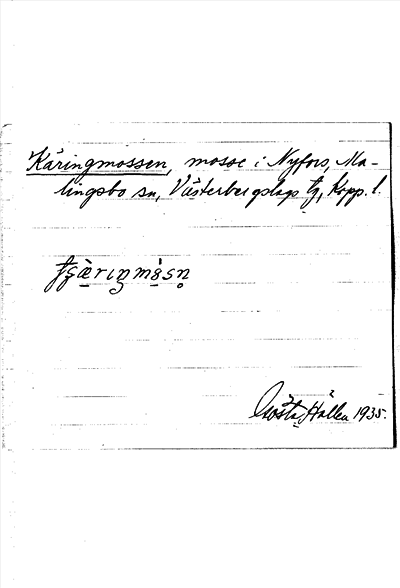 Käringmossen, mosse i Nyfors, Ma-
lingsbo sn, Västerbergslags tg, Kopp. l.
Gösta Hallen 1935.